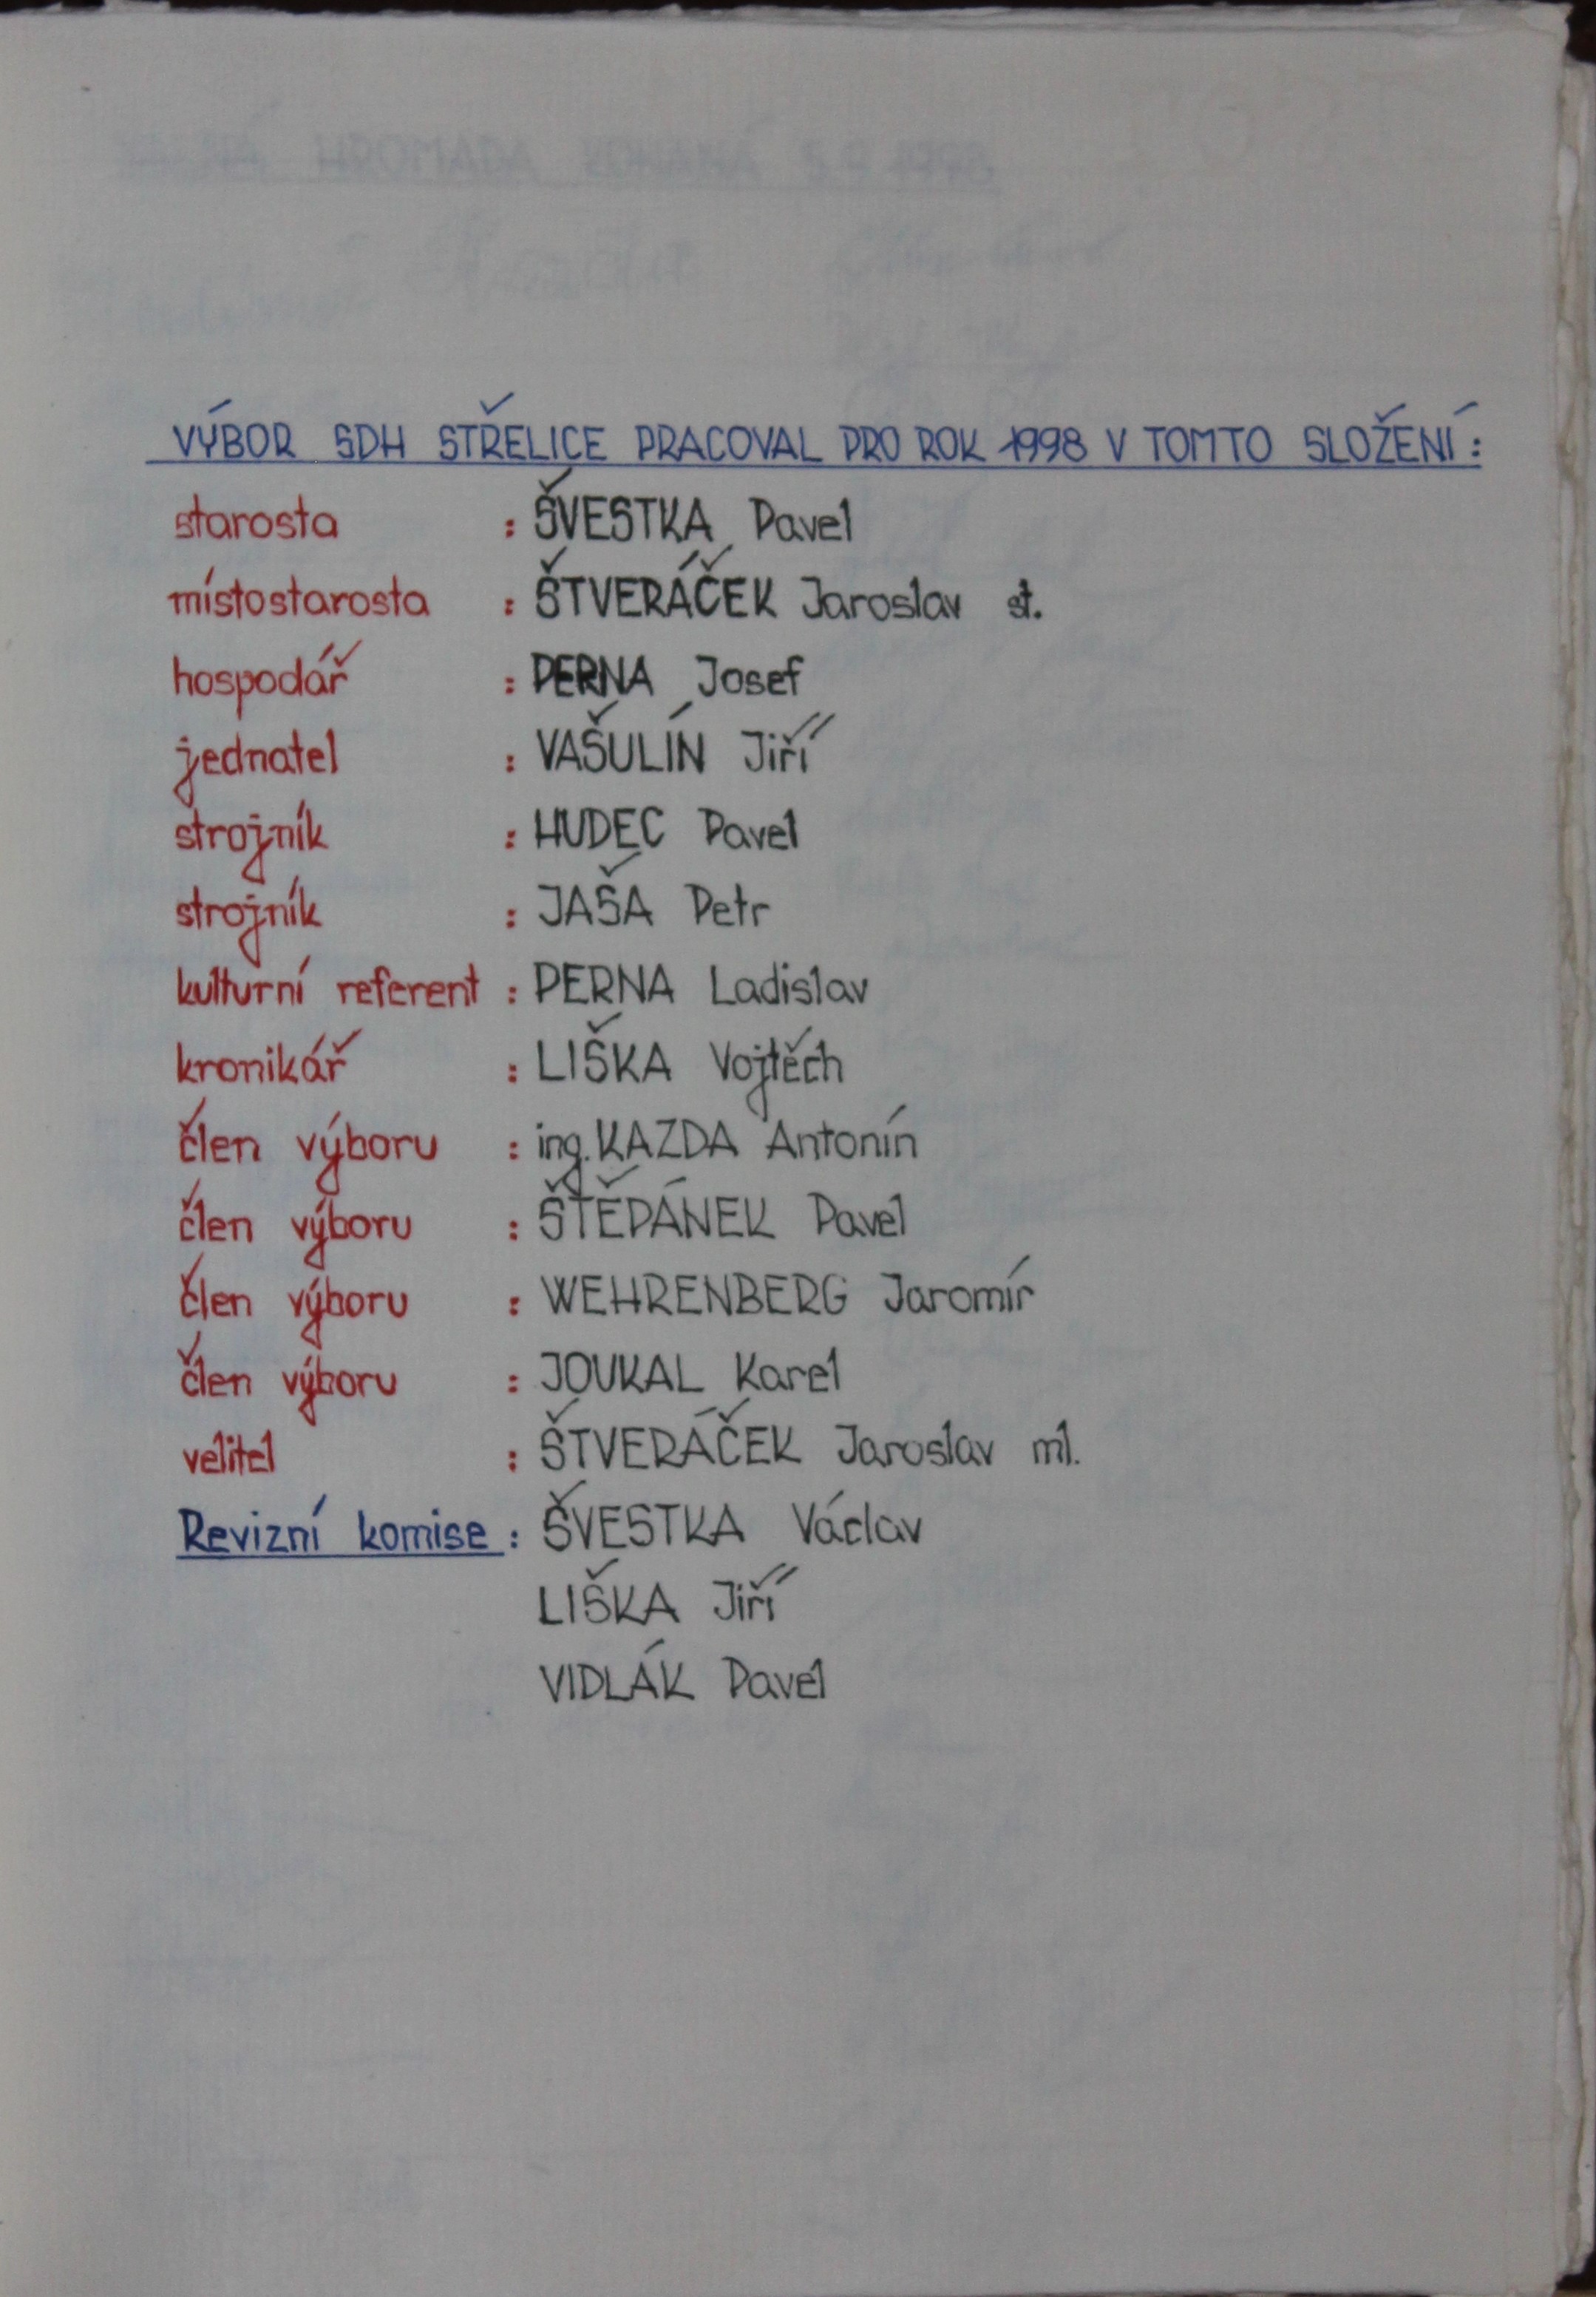 VÝBOR SDH STŘELICE PRACOVAL PRO ROK 1998 V TOMTO SLOŽENÍ:
starosta : ŠVESTKA Pavel
místostarosta : ŠTVERÁČEK Jaroslav st.
hospodář : PERNA Josef
jednatel : VAŠULÍN Jiří
strojník : HUDEC Pavel
strojník : JAŠA Petr
kulturní referent : PERNA Ladislav
kronikář : LIŠKA Vojtěch
člen výboru : ing. KAZDA Antonín
člen výboru : ŠTĚPÁNEK Pavel
člen výboru : WEHRENBERG Jaromír
člen výboru : JOUKAL Karel
velitel : ŠTVERÁČEK Jaroslav ml.
Revizní komise : ŠVESTKA Václav
LIŠKA Jiří
VIDLÁK Pavel